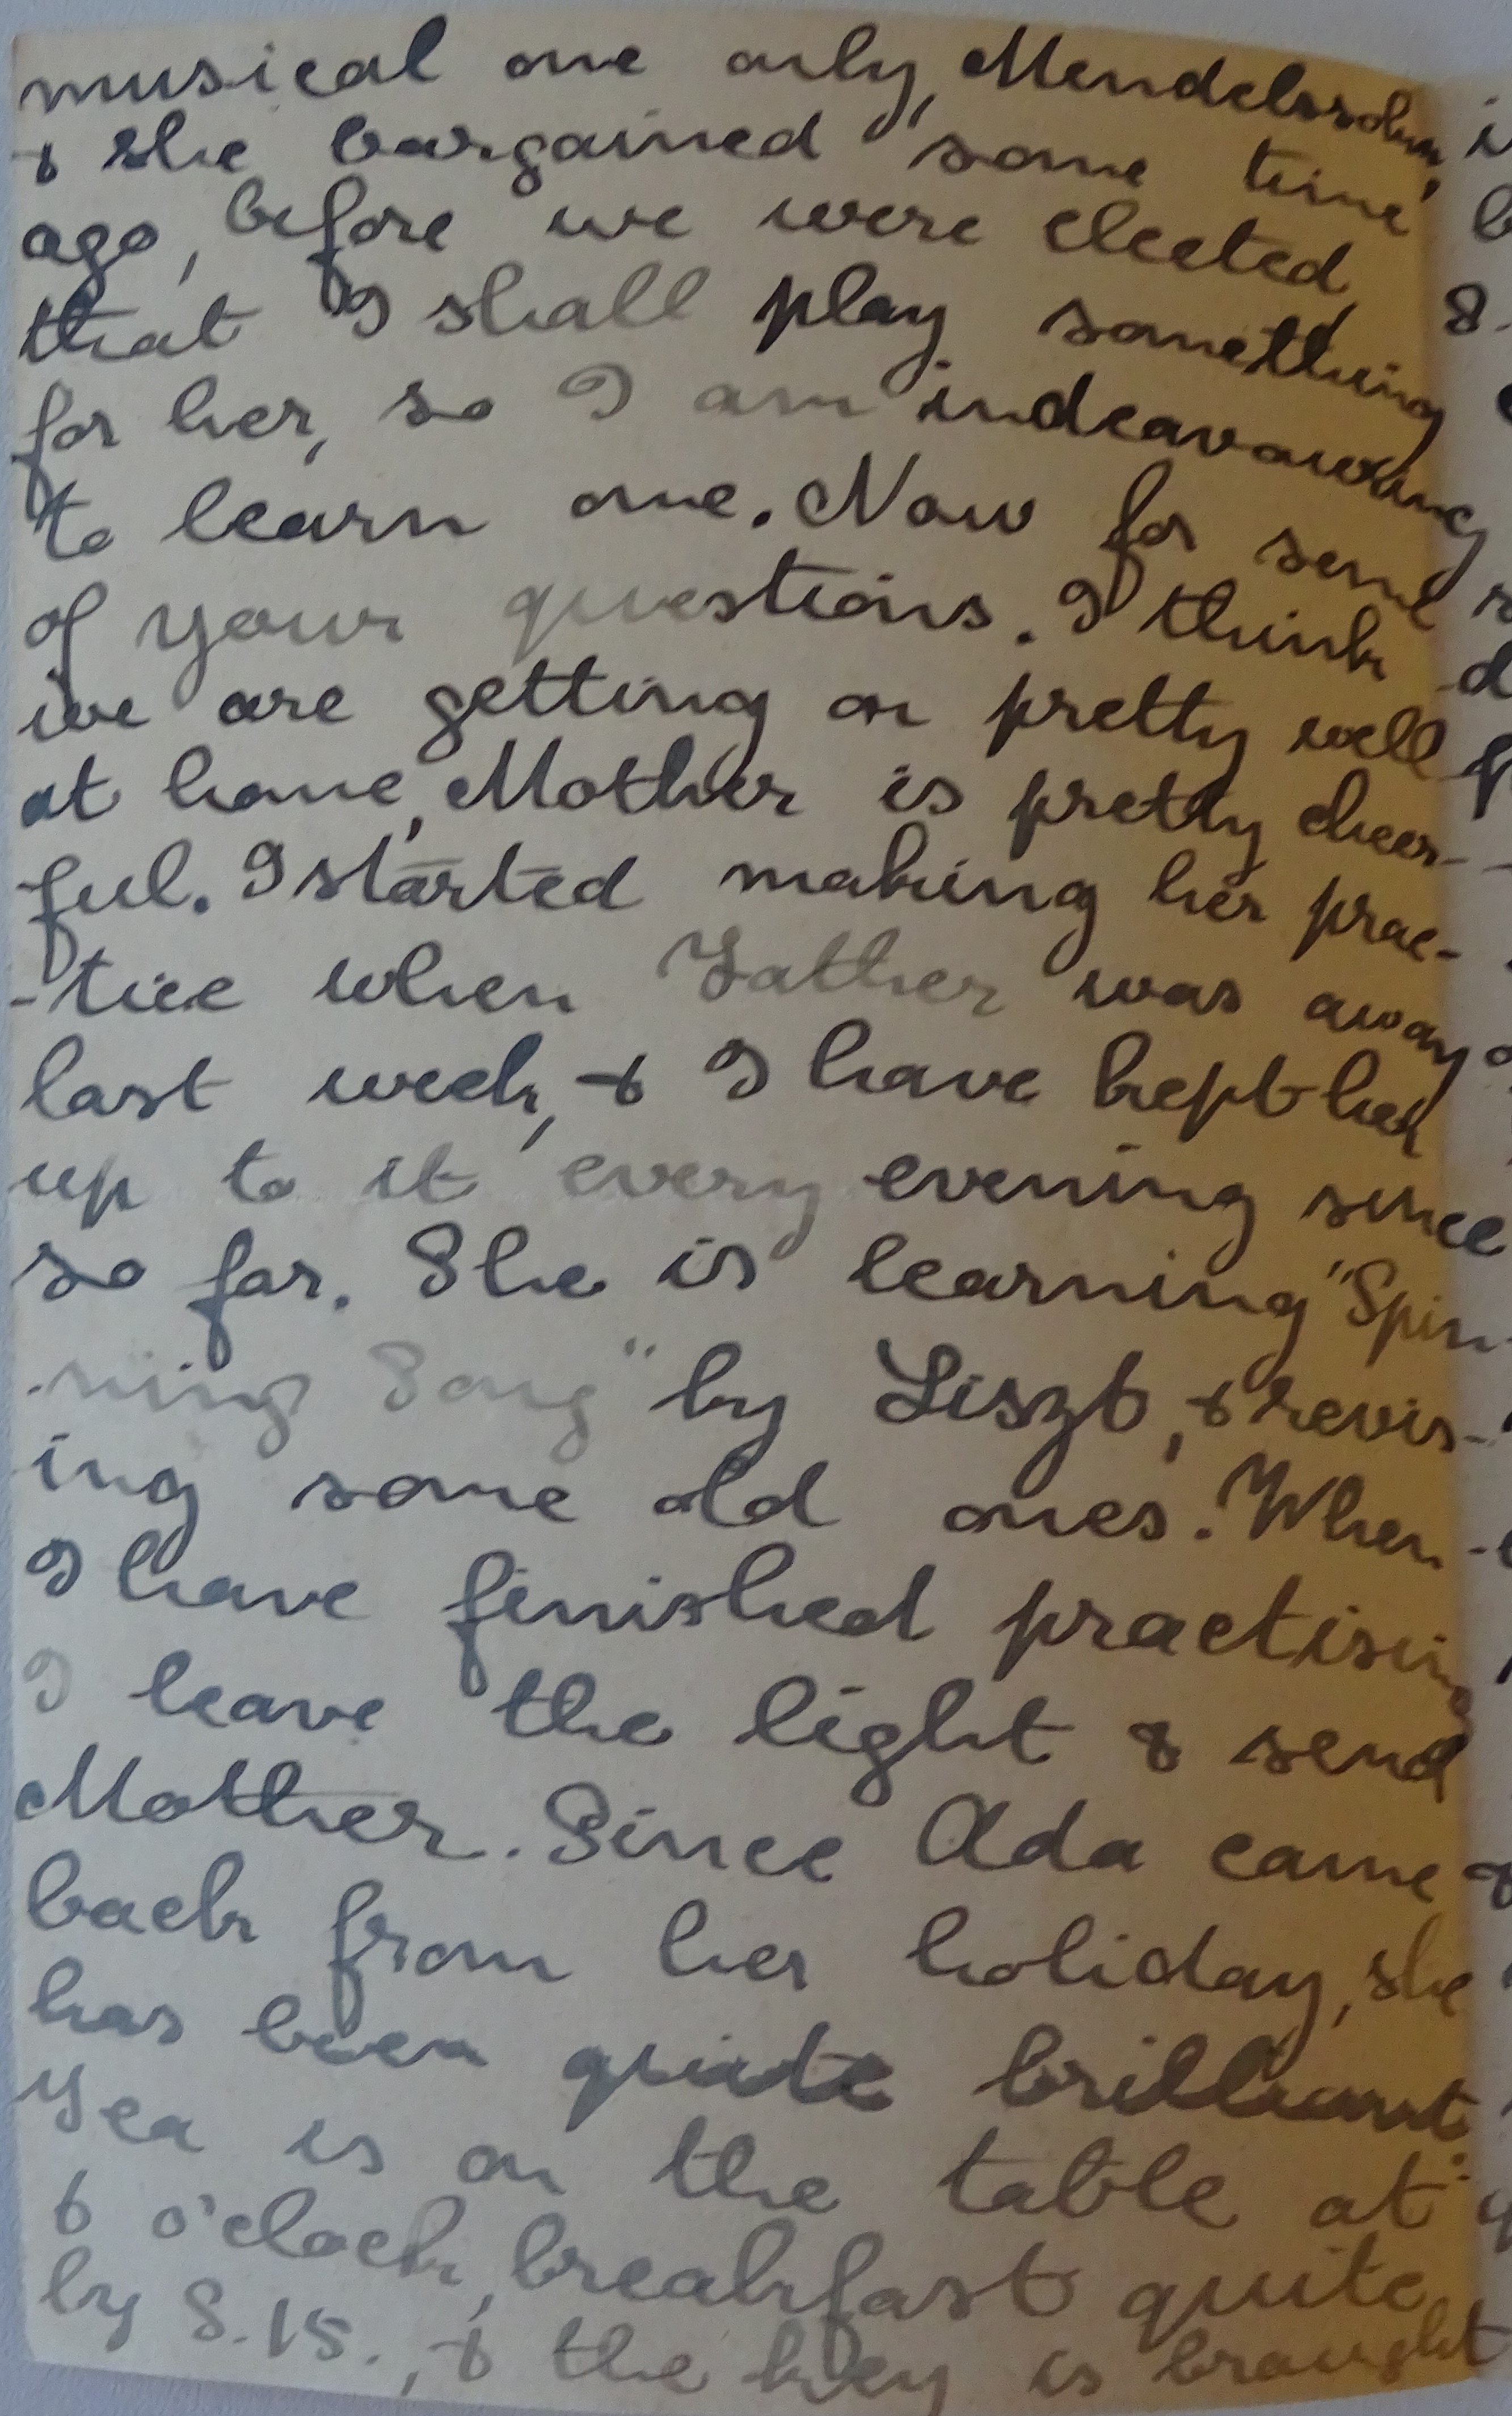 musical one only, Mendelssohn,
& she bargained some time
ago, before we were elected,
that I shall play something
for her, so I am indeavouring
to learn one. Now for some
of your questions. I think
we are getting on pretty well
at home, Mother is pretty cheer-
ful. I started making her prac-
-tice when Father was away
last week, & I have kept her
up to it every evening since
so far. She is learning "Spin-
-ning Song" by Liszt, & revis-
ing some old ones. When
I have finished practising
I leave the light & send
Mother. Since Ada came
back from her holiday, she
has been quite brilliant.
Tea is on the table at
6 o'clock, breakfast quite
by 8.15., & the key is brought